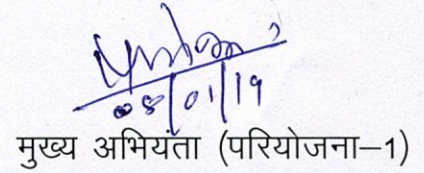 08/01/19
मुख्य अभियंता (परियोजना–1)